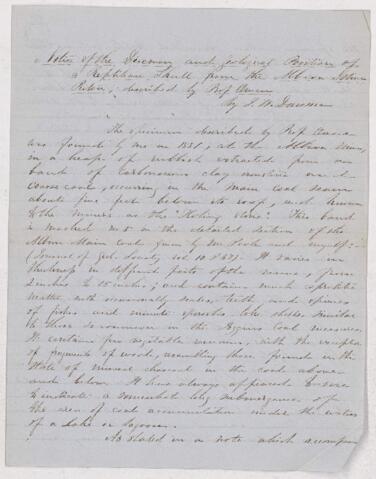 Notice of the Discovery and Geological Position of
a Reptilian Skull from the Albion Mines
Pictou; described by Prof Owen
by J. W. Dawson
The specimen described by Prof Owen
was found by me in 1851, at the Albion Mines,
in a heap of rubbish extracted from a
band of carbonaceous clay ironstone and
coarse coal, occurring in the main coal seam
about five feet below its roof, and known
to the miners as the "Holing stone". This band
is marked no 5 in the detailed section of the
Albion Main coal given by Mr Poole and myself:
(Journal of Geol. Society vol 10 p 47). It varies in
thickness in different parts of the mine, from
2 inches to 15 inches; and contains much coprolitic
matter with occasionally scales, teeth and spines
of fishes, and minute spirorbis like shells similar
to those so common in the Joggins Coal measures.
It contains few vegetable remains, with the exception
of fragments of wood, resembling those found in the
state of mineral charcoal in the coal above
and below. It has always appeared to me
to indicate a somewhat long submergence of
the area of coal accumulation under the waters
of a lake or lagoon.
As stated in a note which accompan